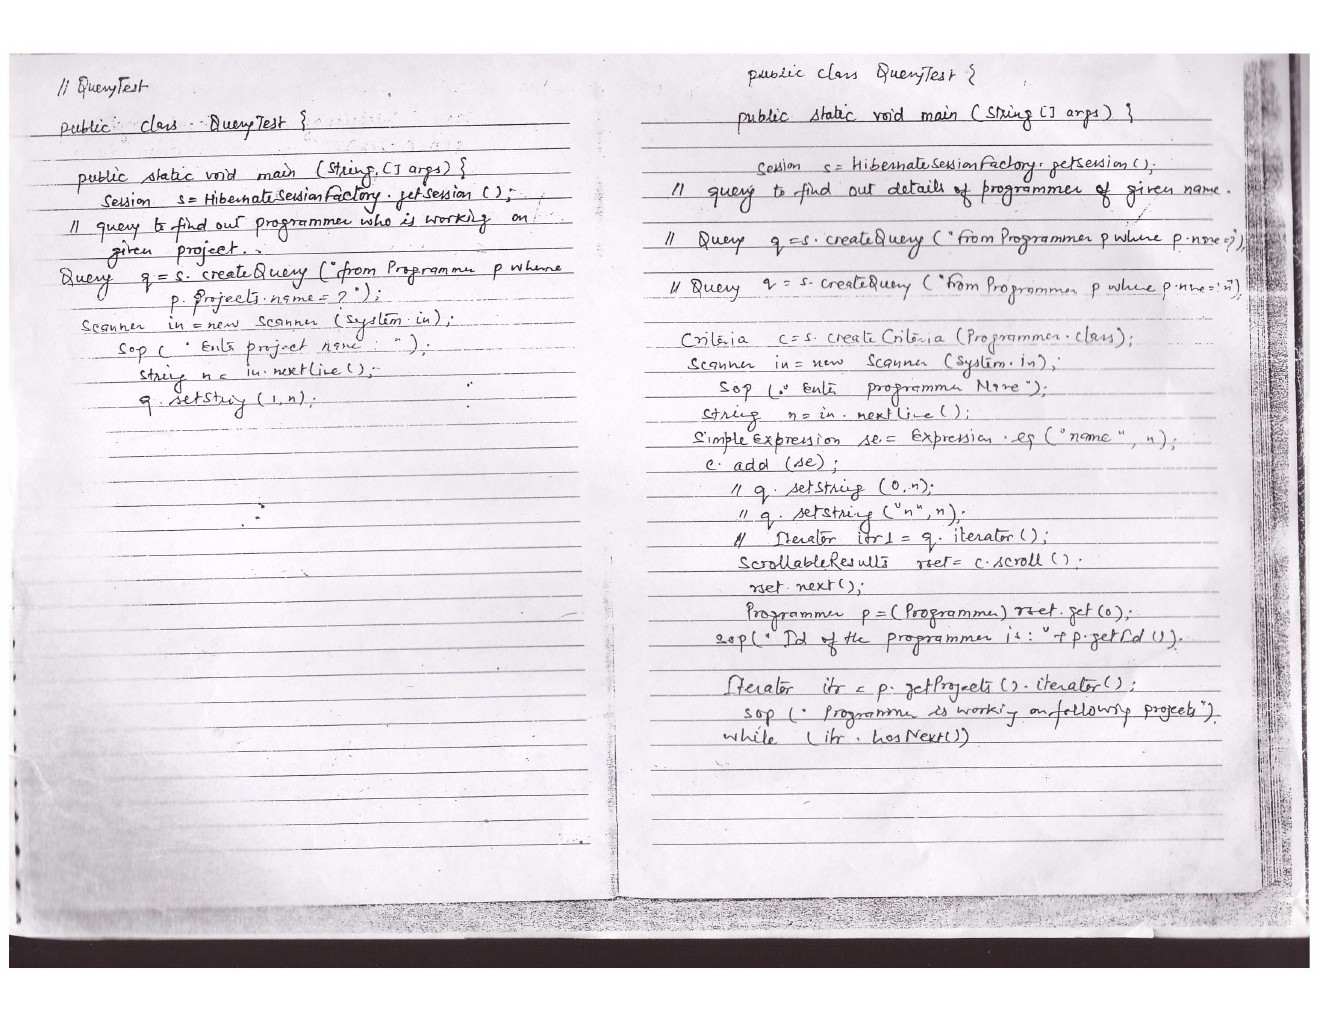 // QueryTest
public class QueryTest {
public static void main (String [] args) {
Session s = HibernateSessionFactory. getSession ();
// query to find out programmer who is working on
given project..
Query q = s. createQuery ("from Programmer p where
p. Projects. name = ? ");
Scanner in = new Scanner (System. in);
Sop ( " Enter project name : " );
String n = in. nextLine ();
q. setString (1, n);
public class QueryTest {
public static void main (String [] args) {
Session s = HibernateSessionFactory. getSession ();
// query to find out details of programmer of given name.
// Query q = s. createQuery ("from Programmer p where p. name =?")
// Query q = s. createQuery ("from Programmer p where p. name =:n")
Criteria c = s. create Criteria (Programmer. class);
Scanner in = new Scanner (System. in);
Sop (" Enter programmer Name");
String n = in. nextLine ();
Simple Expression se = Expression. eq ("name", n);
c. add (se) ;
// q. setString (0, n);
// q. setString ("n", n);
// Iterator itr1 = q. iterator ();
ScrollableResults rset = c. scroll ();
rset. next ();
Programmer p = (Programmer) rset. get (0);
sop (" Id of the programmer is : " + p. getId ());
Iterator itr = p. getProjects (). iterator ();
sop (" Programmer is working on following projects")
while ( itr. hasNext ())